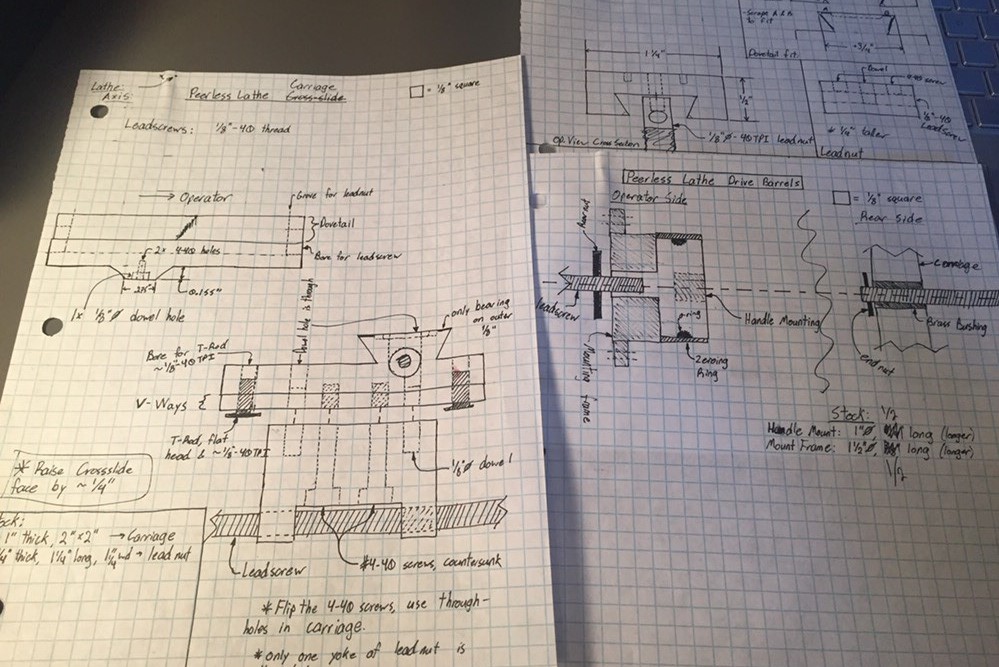 Lathe:
Axis:
Peerless Lathe Carriage
Cross-slide
= 1/8" square
Leadscrews: 1/8"-40 thread
→ Operator
Grove for leadnut
Dovetail
2x 4-40 holes
Bore for leadscrew
.275"
0.155"
1x 1/8"Ø dowel hole
Dowel hole is through
only bearing
on outer
1/8"
Bore for T-Rod
~1/8-40 TPI
V-Ways
T-Rod, flat
head & ~1/8-40 TPI
1/8"Ø dowel
* Raise Crosslide
face by ~ 1/4"
1" thick, 2" x 2" → Carriage
thick, 1 1/4" long, → lead nut
Leadscrew
#4-40 screws, countersunk
* Flip the 4-40 screws, use through-
holes in carriage.
* only one yoke of leadnut is
to fit
~3/4"
Dovetail fit
1 1/4"
1/2"
Dowel
4-40 screw
1/8"-40
Leadscrew
* 1/4" taller
Leadnut
Op. View Cross Section
1/8"Ø-40 TPI leadnut
Peerless Lathe Drive Barrels
= 1/8" square
Operator Side
Rear Side
leadscrew
Handle Mounting
o-ring
Zeroing
Ring
Mounting frame
Carriage
Brass Bushing
end nut
Stock: 1/2
Handle Mount: 1"Ø long (longer)
Mount Frame: 1 1/2"Ø, long (longer)
1/2